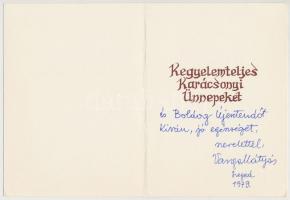 Kegyelemteljes
Karácsonyi
Ünnepeket
és Boldog Újesztendőt
Kíván, jó egészséget,
szeretettel,
Varga Mátyás
Szeged
1979.